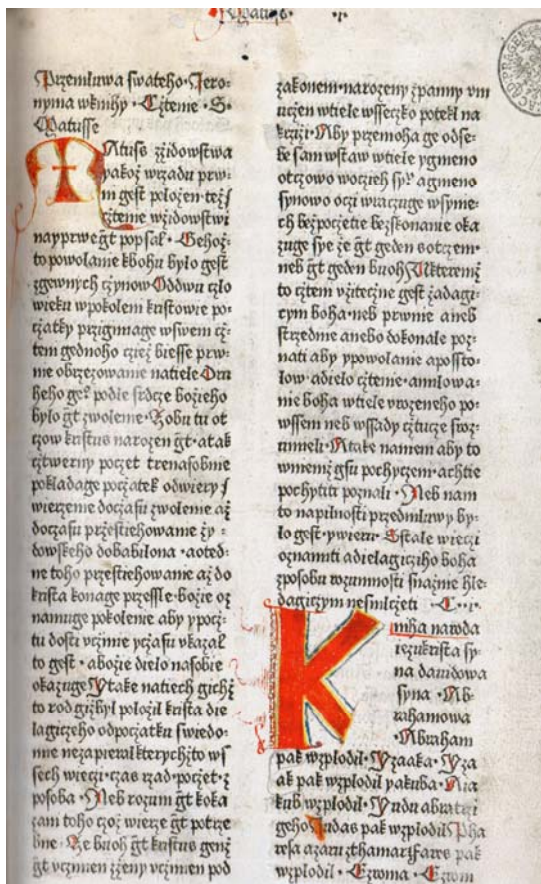 Matuss · i·
Przemluwa swateho · Jero-
nyma wknihy · Cztenie · S·
Matusse
Matuss zzidowstwa
yakoz wrzadu prw-
ni gest polozen tez s
cztenie wzidowstwi
nayprwe gt popsal · Gehoz-
to powolanie kbohu bylo gest
zgewnych czynow Oddwu czlo
wieku wpokoleni kristowie po-
czatky przigimage wswem cz-
teni gednoho cziez biesse prw-
nie obrzezowanie natiele Dru
heho ge⁹ podle srdcze bozieho
bylo gt zwolenie · Zobu tu ot
czow kristus narozen gt · atak
cztwerny poczet trenasobnie
pokladage poczatek odwiery s
wierzenie doczasu zwolenie az
doczasu przestiehowanie zy-
dowskeho dobabilona · aoted-
ne toho przestiehowanie az do
krista konage przessle · bozie oz
namuge pokolenie aby ypocz-
tu dosti vczinie yczasu vkazal
to gest · abozie dielo nasobie
okazuge Ytake natiech gichz
to rod gizbyl polozil krista die
lagicieho odpoczatku swiedo-
nie nezapieral kterychzto ws
sech wieczi · czas rzad · poczet · z
posoba · Neb rozum gt koka
zani toho czoz wierze gt potrze
bne · Ze buoh gt kristus genz
gt vczinien zzeny vczinien pod
zakonem · narozeny zpanny vm
uczen wtiele wsseczko potekl na
krzizi · Aby przemoha ge odse-
be sam wstaw wtiele ygmeno
otczowo woczieh sy⁹ agmeno
synowo oczi wraczuge wsyme-
ch bezpoczetie bezskonanie oka
zuge sye ze gt geden sotczem ·
neb gt geden buoh Wkteremz
to cztem vzitecne gest zadagi-
cym boha · neb prwnie aneb
strzednie anebo dokonale poz-
nati aby ypowolanie aposto-
low · adielo cztenie · amilowa-
nie boha wtiele vrozeneho po-
wssem neb wssady cztucze srozu-
mieli · Atake namem aby to
wniemz gsu pochyczeni · achtie
pochytiti poznali · Neb nam
to napilnosti przedmluwy by-
lo gest · ywieru · Estale wieczi
oznamiti adielagicziho boha
zposobu rozumnosti snaznie hle-
dagiczym nesmlczeti · C · i ·
Kniha naroda
iezukrista sy-
na dauidowa
syna · Ab-
rahamowa
· Abraham
pak wzplodil · Yzaaka · Yza
ak pak wzplodil yakuba · A ia
kub wzplodil · Yudu abratrzi
geho · Iudas pak wzplodil Pha
resa azaru zthamar · fares pak
wzplodil · Ezroma · Ezrom